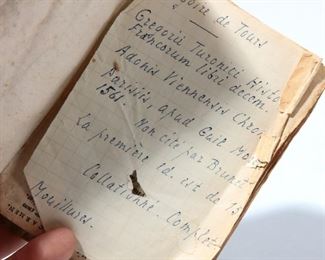 goire de Tours
Gregorii Turonici Histo
Francorum libri decem.
Adonis Viennensis Chron
Parisiis, apud Guil. Mor
1561. Non cité par Brunet.
La première éd. est de 15
Collationné. Complet.
Mouillures.